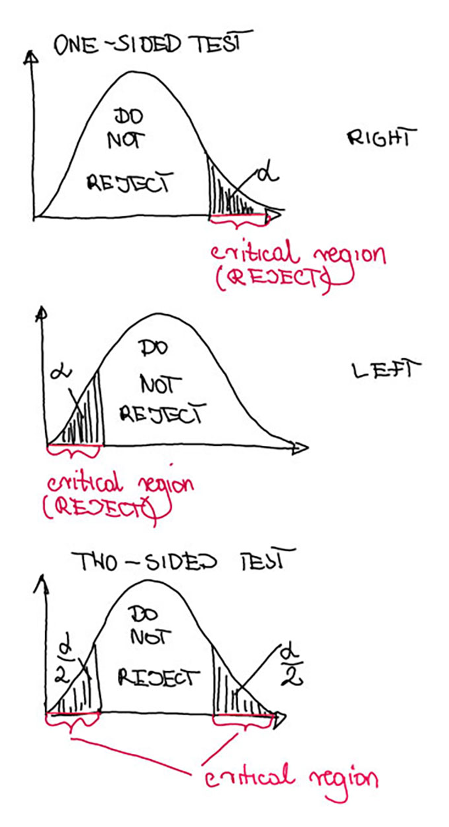 ONE-SIDED TEST
DO
NOT
REJECT
α
RIGHT
critical region
(REJECT)
α
DO
NOT
REJECT
LEFT
critical region
(REJECT)
TWO-SIDED TEST
α/2
DO
NOT
REJECT
α/2
critical region